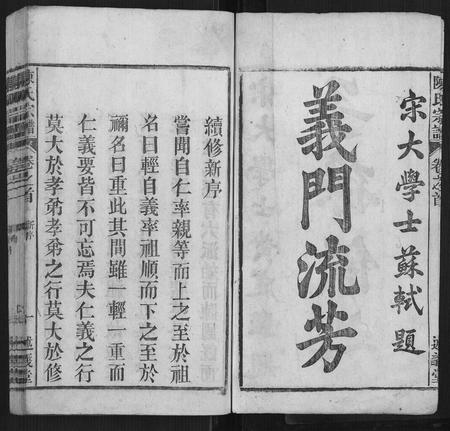 宋大學士蘇軾題
義門流芳
陳氏宗譜
卷之首
續修新序
嘗聞自仁率親等而上之至於祖
名曰輕自義率祖順而下之至於
禰名曰重此其間雖一輕一重而
仁義要皆不可忘焉夫仁義之行
莫大於孝弟孝弟之行莫大於修
陳氏宗譜
卷之首
新序
一
義堂